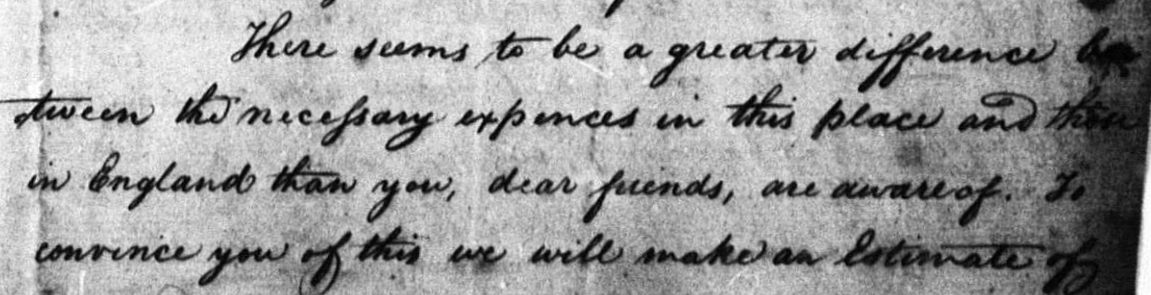 There seems to be a greater difference be
tween the necessary expences in this place and those
in England than you, dear friends, are aware of. To
convince you of this we will make an Estimate of